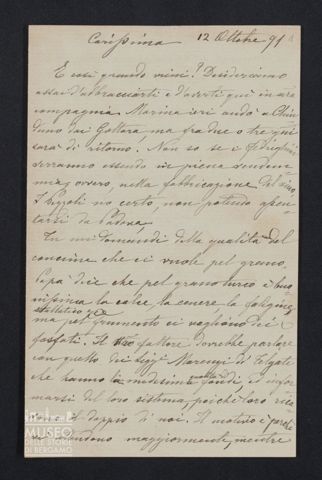 Carissima 12 Ottobre 91
E così quando vieni? Desideriamo
assai d'abbracciarti e d'averti qui in
compagnia. Marina ieri andò a Chiu
duno dai Gottara, ma fra due o tre giorni
sarà di ritorno. Non so se i
verranno essendo in piena vendem
mia, ovvero, nella fabbricazione del vino.
I no certo, non potendo assen
tarsi da Padova.
Tu mi domandi della qualità del
concime che ci vuole pel grano.
Papà dice che pel granoturco è buo
nissima la calce, la cenere, la fuliggine
stallatico ecc
ma pel frumento ci vogliono dei
fosfati. Il tuo fattore dovrebbe parlare
con quello dei Marenzi di Telgate
che hanno i medesimi fondi, ed infor
marsi del loro sistema, poiché loro
no il doppio di noi. Il motivo è perché
maggiormente, mentre
MUSEO
DELLE STORIE
DI BERGAMO